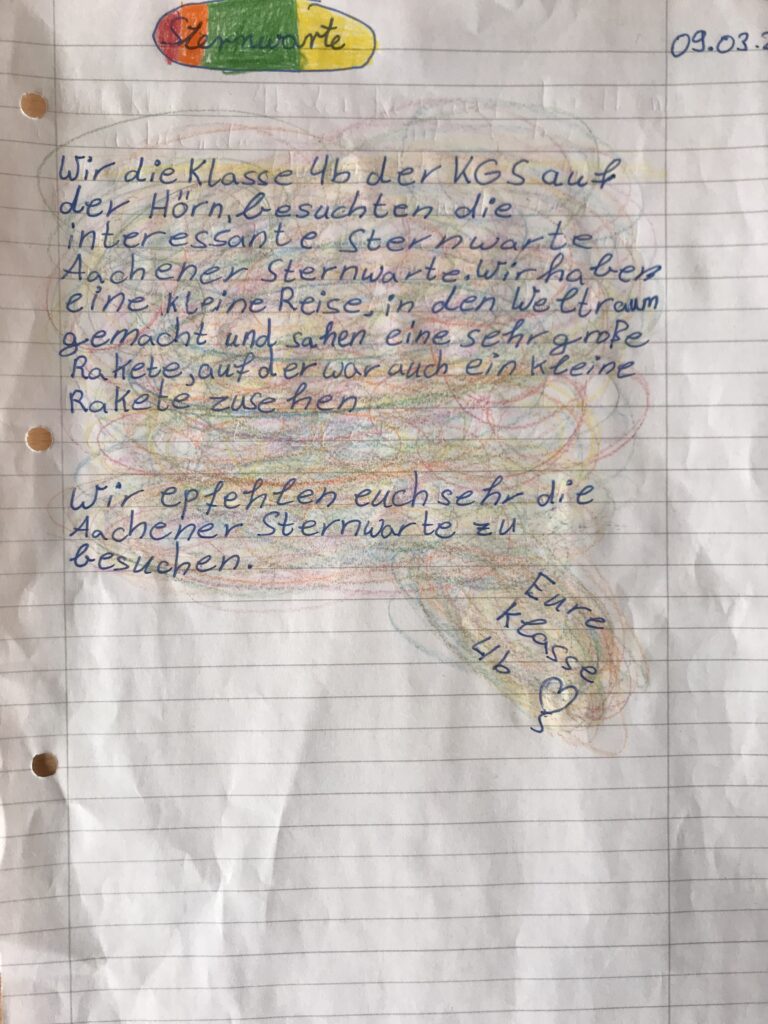 Sternwarte
09.03.2
Wir die Klasse 4b der KGS auf
der Hörn, besuchten die
interessante Sternwarte
Aachener Sternwarte. Wir haben
eine kleine Reise, in den Weltraum
gemacht und sahen eine sehr große
Rakete, auf der war auch ein kleine
Rakete zusehen
Wir epfehlen euch sehr die
Aachener Sternwarte zu
besuchen.
Eure
Klasse
4b